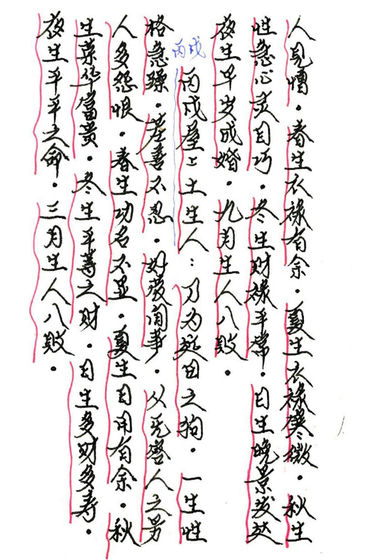 人见憎。春生衣禄有余。夏生衣禄寒微。秋生
性急心灵目巧。冬生财禄平常。日生晚景发达
夜生平岁成婚。九月生人八败。
丙戌
丙戌屋上土生人:乃为 之狗。一生性
格急躁。若善不忍。好爱闲事。 人之劳
人多怨恨。春生功名不显。夏生日用有余。秋
生荣华富贵。冬生平等之财。日生多财多寿。
夜生平平之命。三月生人八败。